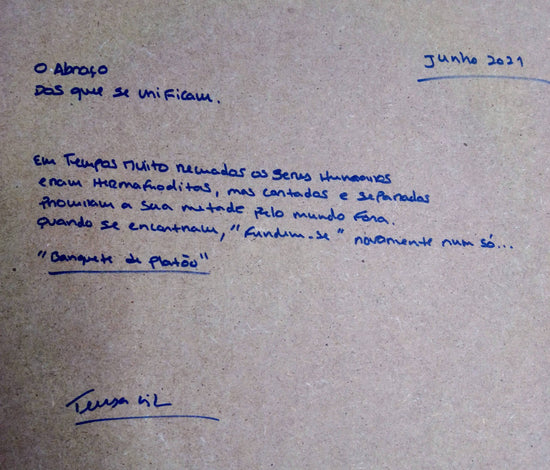 Junho 2021
O Abraço
Das que se unificam.
Em Tempos Muito recuados os seres Humanos
eram Hermafroditas, mas cortados e separados
procuram a sua metade pelo mundo fora.
Quando se encontram, "Fundem-se" novamente num só...
"Banquete de Platão"
Teresa